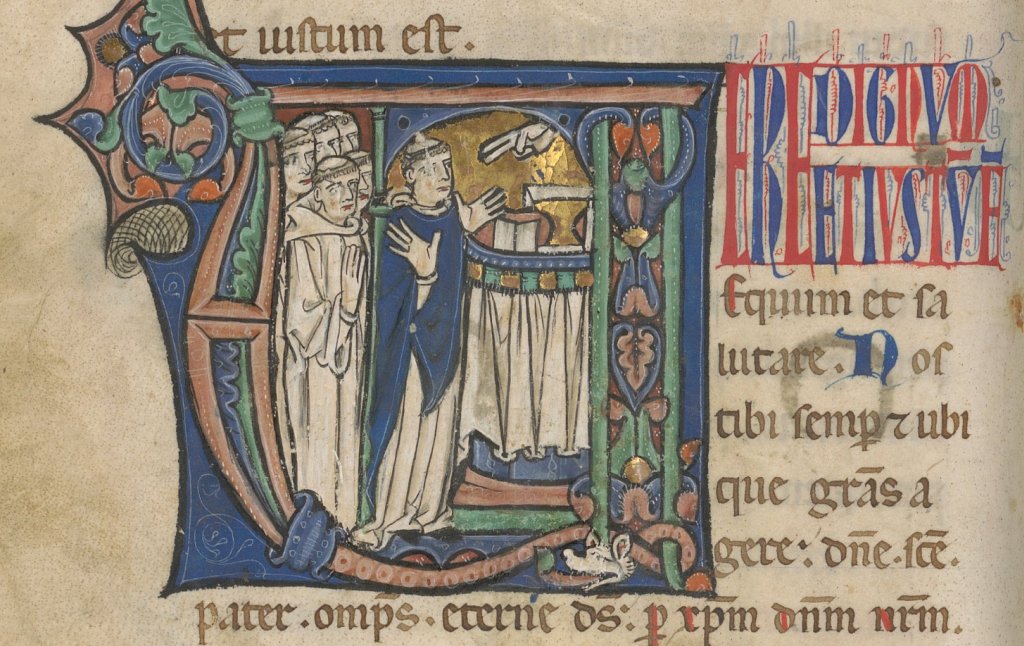 et iustum est.
VERE DIGNUM
ET IUSTŪ Ē
Equum et sa
lutare. Nos
tibi semꝑ ⁊ ubi
que grās a
gere: dn̄e. sc̄e.
pater. omp̄s. eterne ds̄: ꝑ xp̄m dn̄m nr̄m.